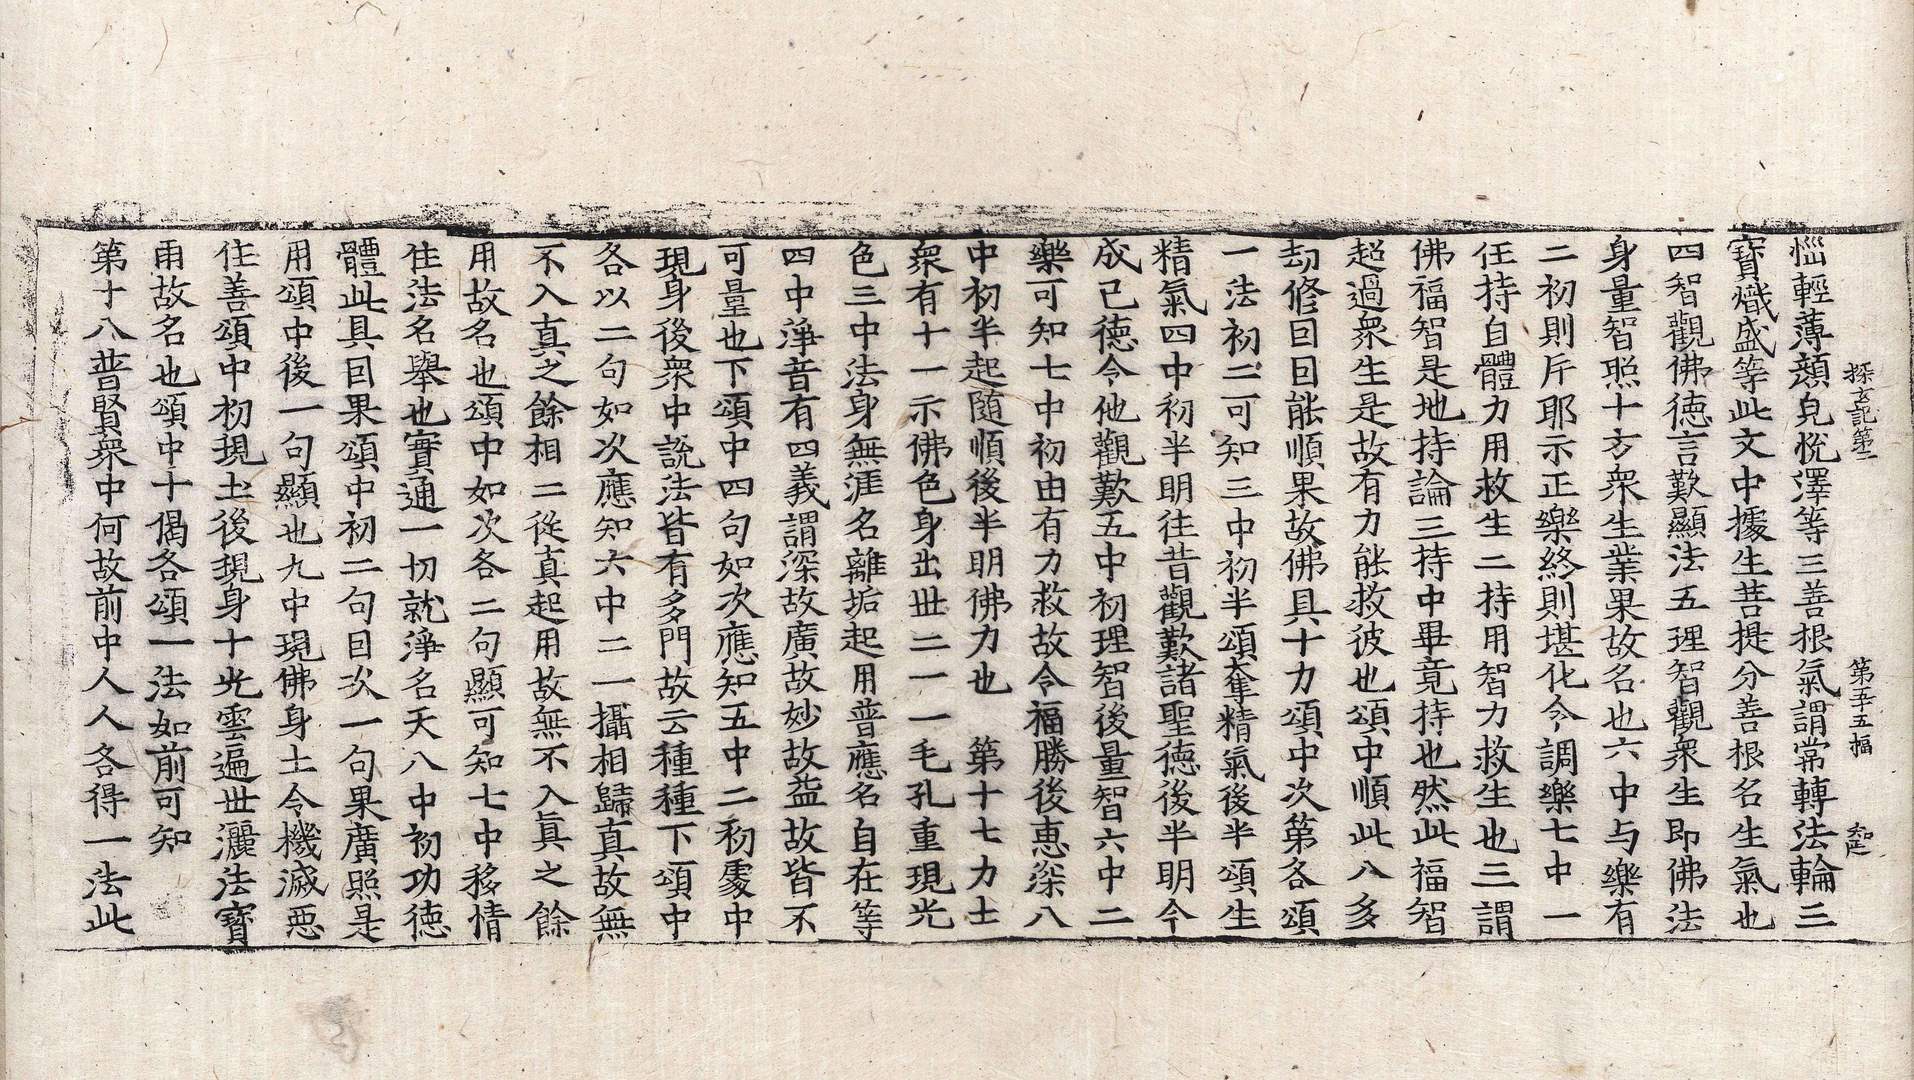 探玄記第二 第五十五幅 知足
惱輕薄顔皃悅澤等三善根氣謂常轉法輪三
寶熾盛等此文中據生菩提分善根名生氣也
四智觀佛德言歎顯法五理智觀衆生即佛法
身量智照十方衆生業果故名也六中与樂有
二初則斥耶示正樂終則堪化令調樂七中一
任持自體力用救生二持用智力救生也三謂
佛福智是地持論三持中畢竟持也然此福智
超過衆生是故有力能救彼也頌中順此八多
劫修因因能順果故佛具十力頌中次第各頌
一法初二可知三中初半頌奪精氣後半頌生
精氣四中初半明往昔觀歎諸聖德後半明今
成己德令他觀歎五中初理智後量智六中二
樂可知七中初由有力救故令福勝後惠深八
中初半起随順後半明佛力也 第十七力士
衆有十一示佛色身出世二一一毛孔重現光
色三中法身無涯名離垢起用普應名自在等
四中淨音有四義謂深故廣故妙故益故皆不
可量也下頌中四句如次應知五中二初處中
現身後衆中說法皆有多門故云種種下頌中
各以二句如次應知六中二一攝相歸真故無
不入真之餘相二從真起用故無不入眞之餘
用故名也頌中如次各二句顯可知七中移情
住法名舉也實通一切就淨名天八中初功德
體此具因果頌中初二句因次一句果廣照是
用頌中後一句顯也九中現佛身土令機滅惡
住善頌中初現土後現身十光雲遍世灑法寶
雨故名也頌中十偈各頌一法如前可知
第十八普賢衆中何故前中人人各得一法此